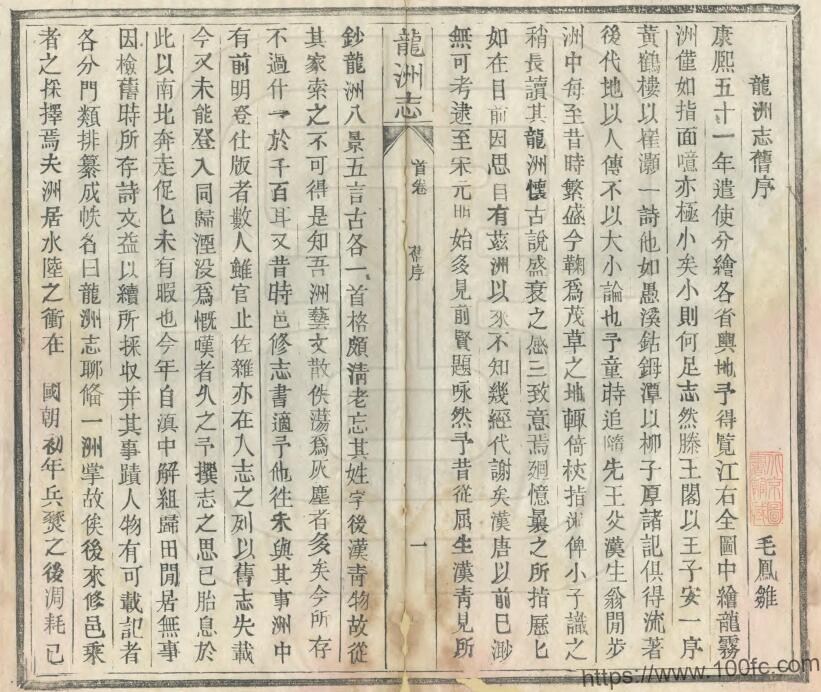 龍洲志舊序
毛鳳雛
康熙五十一年遣使分繪各省輿地予得覽江右全圖中繪龍霧
洲僅如指面噫亦極小矣小則何足志然滕王閣以王子安一序
黃鶴樓以崔灝一詩他如愚溪鈷鉧潭以柳子厚諸記俱得流著
後代地以人傳不以大小論也予童時追隨先王父漢生翁閒步
洲中每至昔時繁盛今鞠為茂草之地輒倚杖指洲俾小子識之
稍長讀其龍洲懷古說盛衰之感三致意焉迴憶曩之所指歷匕
如在目前因思目有茲洲以來不知幾經代謝矣漢唐以前已渺
無可考逮至宋元明始多見前賢題咏然予昔從屈生漢青見所
龍洲志
首卷
舊序
一
鈔龍洲八景五言古各一首格頗清老忘其姓字後漢青物故從
其家索之不可得是知吾洲藝文散佚蕩為灰塵者多矣今所存
不過什一於千百耳又昔時邑修志書適予他徃未與其事洲中
有前明登仕版者數人雖官止佐雜亦在人志之列以舊志失載
今又未能登入同歸湮没為慨嘆者久之予撰志之思已胎息於
此以南北奔走促匕未有暇也今年自滇中解組歸田閒居無事
因檢舊時所存詩文益以續所採収并其事蹟人物有可載記者
各分門類排纂成帙名曰龍洲志聊俻一洲掌故俟後來修邑乘
者之採擇焉夫洲居水陸之衝在 國朝初年兵燹之後凋耗已
https://www.100fc.com